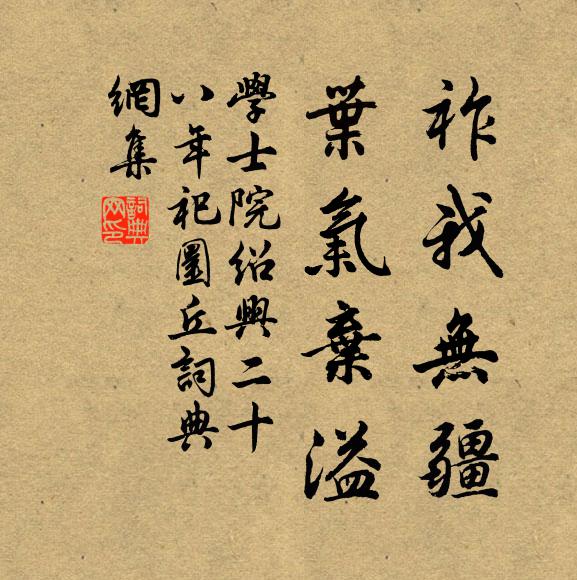 祚我無疆
葉氣棄溢
學士院紹興二十
八年祀圜丘詞典
網集
詞典網印